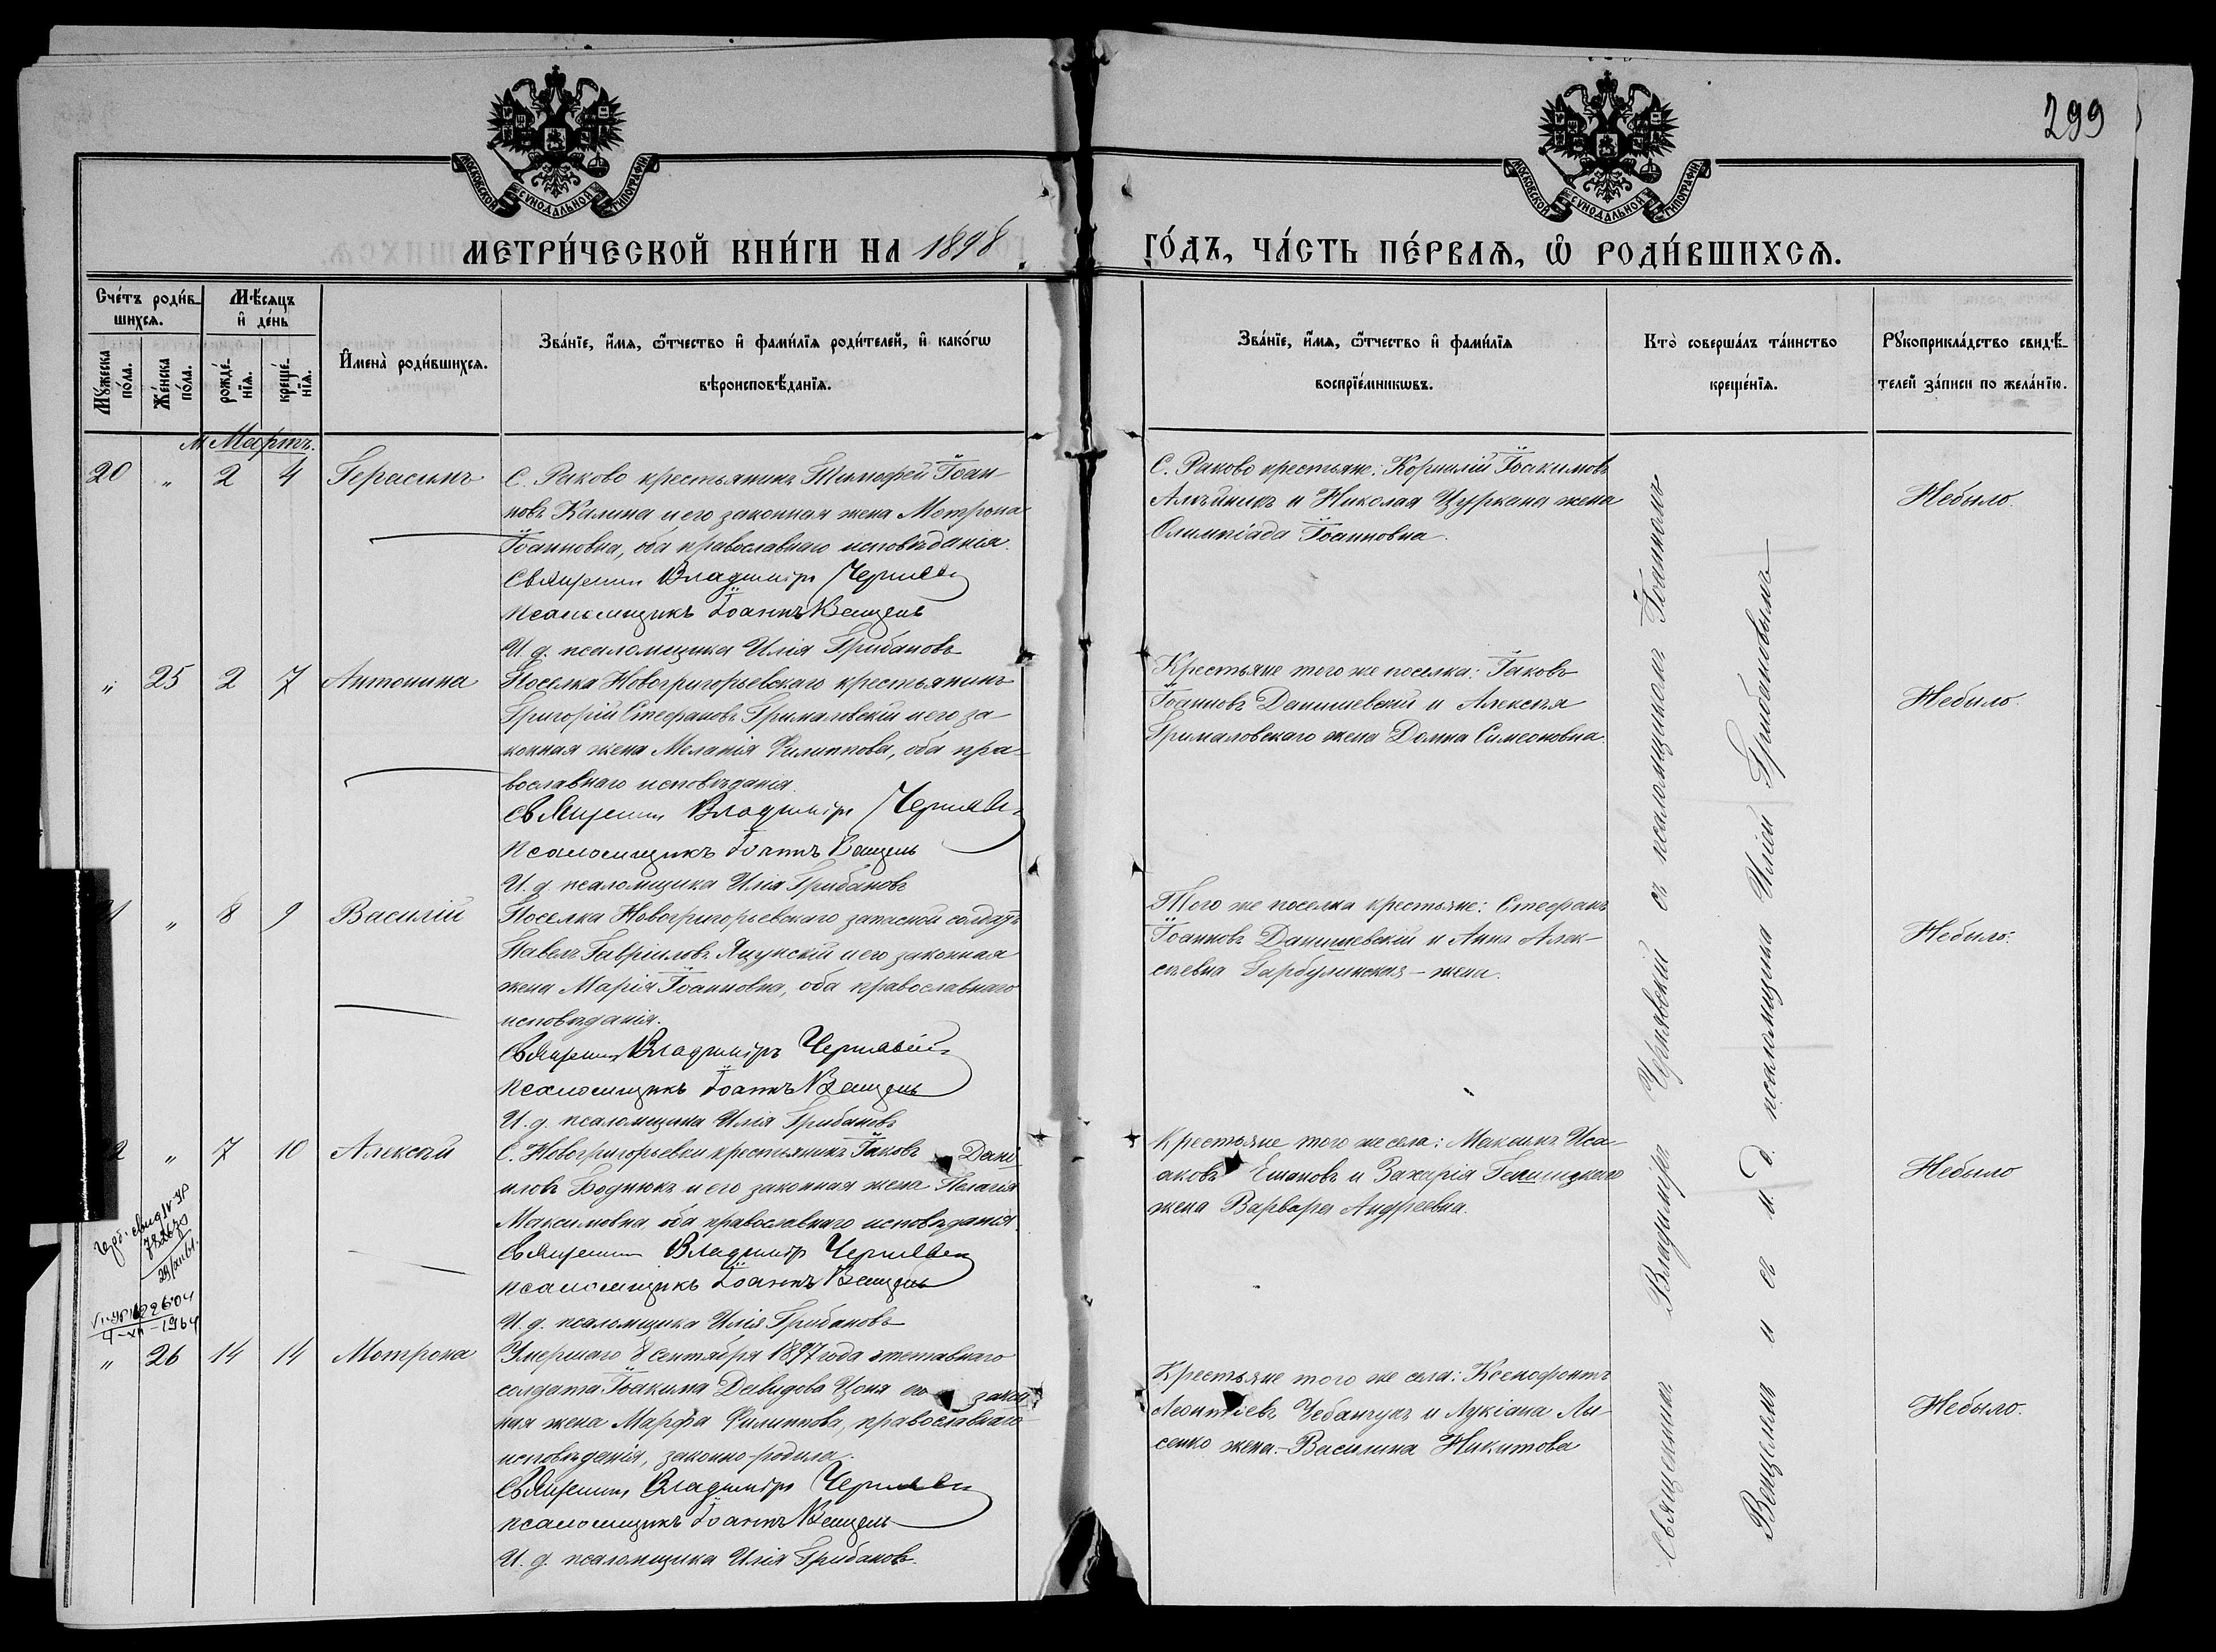 299
МОСКОВСКОЙ СУНОДАЛЬНОЙ ТИПОГРАФІИ
МОСКОВСКОЙ СУНОДАЛЬНОЙ ТИПОГРАФІИ
МЕТРИ́ЧЕСКОЙ КНИ́ГИ НА 1898
ГО́ДЪ, ЧА́СТЬ ПЕ́РВАѦ, Ѡ҆ РОДИ́ВШИХСѦ.
Сче́тъ роди́в-
шихсѧ.
Мꙋ́жеска
по́ла.
Же́нска
по́ла.
Мѣ́сѧцъ
и҆ де́нь
рожде́-
нїѧ.
креще́-
нїѧ.
И҆мена̀ роди́вшихсѧ.
Зва́нїе, и҆́мѧ, ѻ҆́тчество и҆ фами́лїѧ роди́телей, и҆ како́гѡ
вѣроисповѣ́данїѧ.
Зва́нїе, и҆́мѧ, ѻ҆́тчество и҆ фами́лїѧ
воспрїе́мникѡвъ.
Кто̀ соверша́лъ та́инство
креще́нїѧ.
Рꙋкоприкла́дство свидѣ́-
телей за́писи по жела́нїю.
М. Мартъ.
20 " 2 4 Герасимъ
С. Раково крестьянинъ Тимофей Іоан-
новъ Калина и его законная жена Мотрона
Іоанновна, оба православнаго исповѣданія.
Священник Владиміръ Чернявск
Псаломщикъ Іоаннъ Венцель
И. д. псаломщика Илія Грибановъ
С. Раково крестьяне: Корнилій Іоакимовъ
Алѣйникъ и Николая Цуркана жена
Олимпіада Іоанновна.
Небыло.
" 25 2 7 Антонина
Поселка Новогригорьевскаго крестьянинъ
Григорій Стефановъ Грималовскій и его за-
конная жена Меланія Филиппова, оба пра-
вославнаго исповѣданія.
Священник Владиміръ Чернявск
Псаломщикъ Іоаннъ Венцель
И. д. псаломщика Илія Грибановъ
Крестьяне того же поселка: Іаковъ
Іоанновъ Данишевскій и Алексѣя
Грималовскаго жена Домна Симеоновна.
Небыло.
1 " 8 9 Василій
Поселка Новогригорьевскаго запасной солдатъ
Павелъ Гавріиловъ Яцунскій и его законная
жена Марія Іоанновна, оба православнаго
исповѣданія.
Священник Владиміръ Чернявск
Псаломщикъ Іоаннъ Венцель
И. д. псаломщика Илія Грибановъ
Того же поселка крестьяне: Стефанъ
Іоанновъ Данишевскій и Анна Алек-
сѣевна Гарбулинская - жена.
Небыло.
2 " 7 10 Алексѣй
С. Новогригорьевки крестьянинъ Іаковъ Дані-
иловъ Боднюкъ и его законная жена Пелагія
Максимовна оба православнаго исповѣданія.
Священник Владиміръ Чернявск
Псаломщикъ Іоаннъ Венцель
И. д. псаломщика Илія Грибановъ
Крестьяне того же села: Максимъ Иса-
аковъ Ешановъ и Захарія
жена Варвара Андреевна.
Небыло
4-XII-1964
" 26 14 14 Мотрона
Умершаго 8 Сентября 1897 года отставнаго
солдата Іоакима Давидова Цоня его закон
ная жена Марфа Филиппова, православнаго
исповѣданія, законно-родила.
Священник Владиміръ Чернявск
Псаломщикъ Іоаннъ Венцель
И. д. псаломщика Илія Грибановъ.
Крестьяне того же села: Ксенофонтъ
Леонтіевъ Чебанчукъ и Лукіана Ли-
сенко жена - Василина Никитова
Небыло.
Священникъ Владиміръ Чернявскій съ псаломщикомъ Іоанномъ
Венцелемъ и съ и. д. псаломщика Иліей Грибановымъ